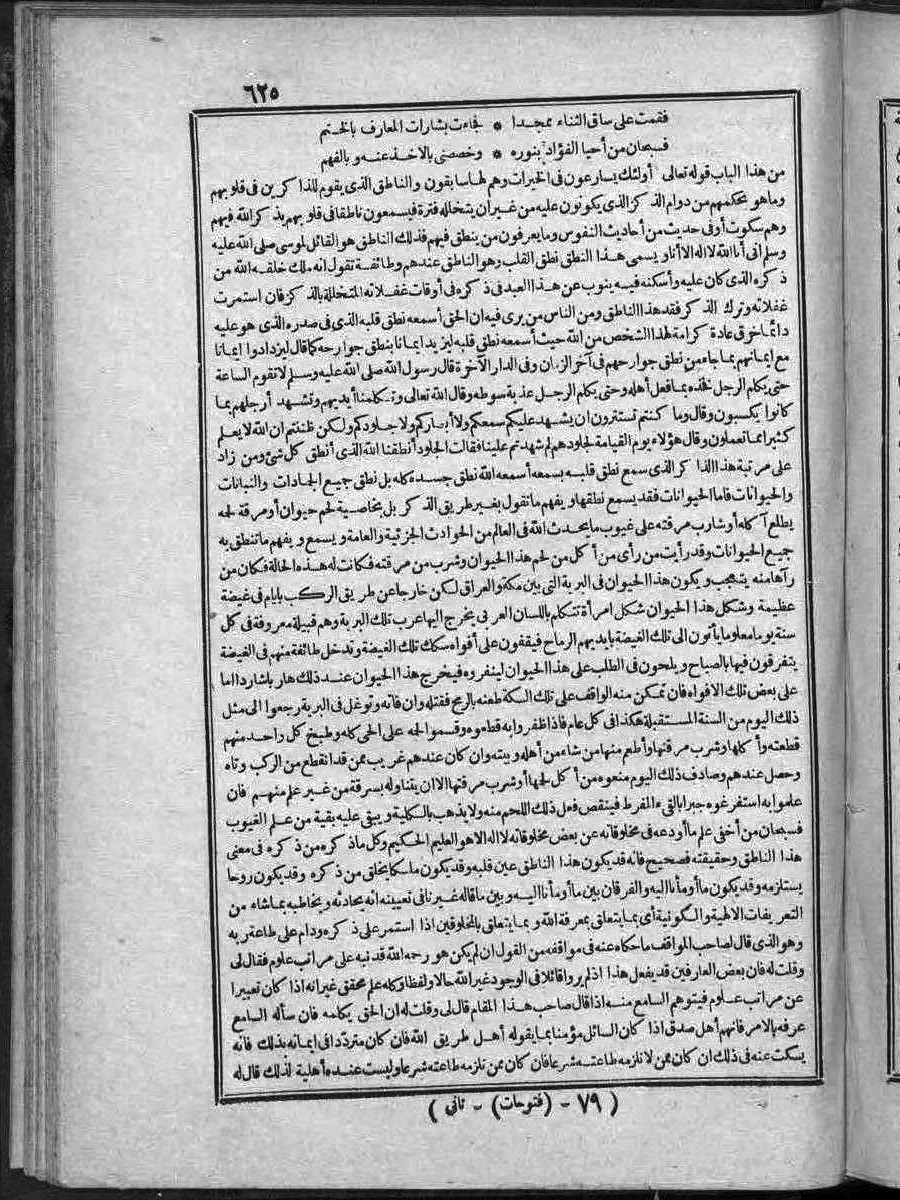 ٦٢٥
فقمت على ساق الثناء ممجدا * فجاءت بشارات المعارف بالختم
فسبحان من أحيا الفؤاد بنوره * وخصصنى بالاخذ عنه وبالفهم
من هذا الباب قوله تعالى أولئك يسارعون فى الخيرات وهم لها سابقون والناطق الذى يقوم للذاكرين فى قلوبهم
وما هو بحكمهم من دوام الذكر الذى يكونون عليه من غير أن يتخلله فترة فيسمعون ناطقا فى قلوبهم يذكر الله فيهم
وهم سكوت أو فى حديث من أحاديث النفوس وما يعرفون من ينطق فيهم فذلك الناطق هو القائل لموسى صلى الله عليه
وسلم انى أنا الله لا اله الا أنا ويسمى هذا النطق نطق القلب وهو الناطق عندهم وطائفة تقول انه ملك خلقه الله من
ذكره الذى كان عليه وأسكنه فيه ينوب عن هذا العبد فى ذكره فى أوقات غفلاته المتخللة بالذكر فان استمرت
غفلاته وترك الذكر فقد هذا الناطق ومن الناس من يرى فيه ان الحق أسمعه نطق قلبه الذى فى صدره الذى هو عليه
دائما خرق عادة كرامة لهذا الشخص من الله حيث أسمعه نطق قلبه ليزيد ايمانا بنطق جوارحه كما قال ليزدادوا ايمانا
مع ايمانهم بما جاء من نطق جوارحهم فى آخر الزمان وفى الدار الآخرة قال رسول الله صلى الله عليه وسلم لا تقوم الساعة
حتى يكلم الرجل فخذه بما فعل أهله وحتى يكلم الرجل عذبة سوطه وقال الله تعالى وتكلمنا أيديهم وتشهد أرجلهم بما
كانوا يكسبون وقال وما كنتم تستترون ان يشهد عليكم سمعكم ولا أبصاركم ولا جلودكم ولكن ظننتم ان الله لا يعلم
كثيرا مما تعملون وقال هؤلاء يوم القيامة لجلودهم لم شهدتم علينا فقالت الجلود أنطقنا الله الذى أنطق كل شئ ومن زاد
على مرتبة هذا الذاكر الذى سمع نطق قلبه بسمعه أسمعه الله نطق جسده كله بل نطق جميع الجمادات والنباتات
والحيوانات فاما الحيوانات فقد يسمع نطقها ويفهم ما تقول بغير طريق الذكر بل بخاصية لحم حيوان أو مرقة لحمه
يطلع آكله أو شارب مرقته على غيوب ما يحدث الله فى العالم من الحوادث الجزئية والعامة ويسمع ويفهم ما تنطق به
جميع الحيوانات وقد رأيت من رأى من أكل من لحم هذا الحيوان وشرب من مرقته فكانت له هذه الحالة فكان من
رآها منه يتعجب ويكون هذا الحيوان فى البرية التى بين مكة والعراق لكن خارجا عن طريق الركب بايام فى غيضة
عظيمة وشكل هذا الحيوان شكل امرأة تتكلم باللسان العربى يخرج اليها عرب تلك البرية وهم قبيلة معروفة فى كل
سنة يوما معلوما يأتون الى تلك الغيضة بايديهم الرماح فيقفون على أفواه سكك تلك الغيضة وتدخل طائفة منهم فى الغيضة
يتفرقون فيها بالصياح ويلحون فى الطلب على هذا الحيوان لينفروه فيخرج هذا الحيوان عند ذلك هاربا شاردا اما
على بعض تلك الافواه فان تمكن منه الواقف على تلك السكة طعنه بالرمح فقتله وان فاته وتوغل فى البرية رجعوا الى مثل
ذلك اليوم من السنة المستقبلة هكذا فى كل عام فاذا ظفروا به قطعوه وقسموا لحمه على الحى كله وطبخ كل واحد منهم
قطعته وأكلها وشرب مرقتها وأطعم منها من شاء من أهله وبيته وان كان عندهم غريب ممن قد انقطع من الركب وتاه
وحصل عندهم وصادف ذلك اليوم منعوه من أكل لحمها أو شرب مرقتها الا ان يتناوله بسرقة من غير علم منهم فان
علموا به استفرغوه جبرا بالقىء المفرط فينقص فعل ذلك اللحم منه ولا يذهب بالكلية ويبقى عليه بقية من علم الغيوب
فسبحان من أخفى علم ما أودعه فى مخلوقاته عن بعض مخلوقاته لا اله الا هو العليم الحكيم وكل ما ذكره من ذكره فى معنى
هذا الناطق وحقيقته فصحيح فانه قد يكون هذا الناطق عين قلبه وقد يكون ملكا يخلق من ذكره وقد يكون روحا
يستلزمه وقد يكون ما أومأنا اليه والفرقان بين ما أومأنا اليه وبين ما قاله غيرنا فى تعيينه انه يحادثه ويخاطبه بما شاء من
التعريفات الالهية والكونية أى بما يتعلق بمعرفة الله وبما يتعلق بالمخلوقين اذا استمر على ذكره ودام على طاعة ربه
وهو الذى قال لصاحب المواقف ما حكاه عنه فى مواقفه من القول ان لم يكن هو رحمه الله قد نبه على مراتب علوم فقال لى
وقلت له فان بعض العارفين قد يفعل هذا اذ لم يروا قائلا فى الوجود غير الله حالا ولفظا وكله علم محقق غير انه اذا كان تعبيرا
عن مراتب علوم فيتوهم السامع منه اذا قال صاحب هذا المقام قال لى وقلت له ان الحق يكلمه فان سأله السامع
عرفه بالامر فانهم أهل صدق اذا كان السائل مؤمنا بما يقوله أهل طريق الله فان كان متردّدا فى ايمانه بذلك فانه
يسكت عنه فى ذلك ان كان ممن لا تلزمه طاعته شرعا فان كان ممن تلزمه طاعته شرعا وليست عنده أهلية لذلك قال له
( ٧٩ - (فتوحات) - ثانى )